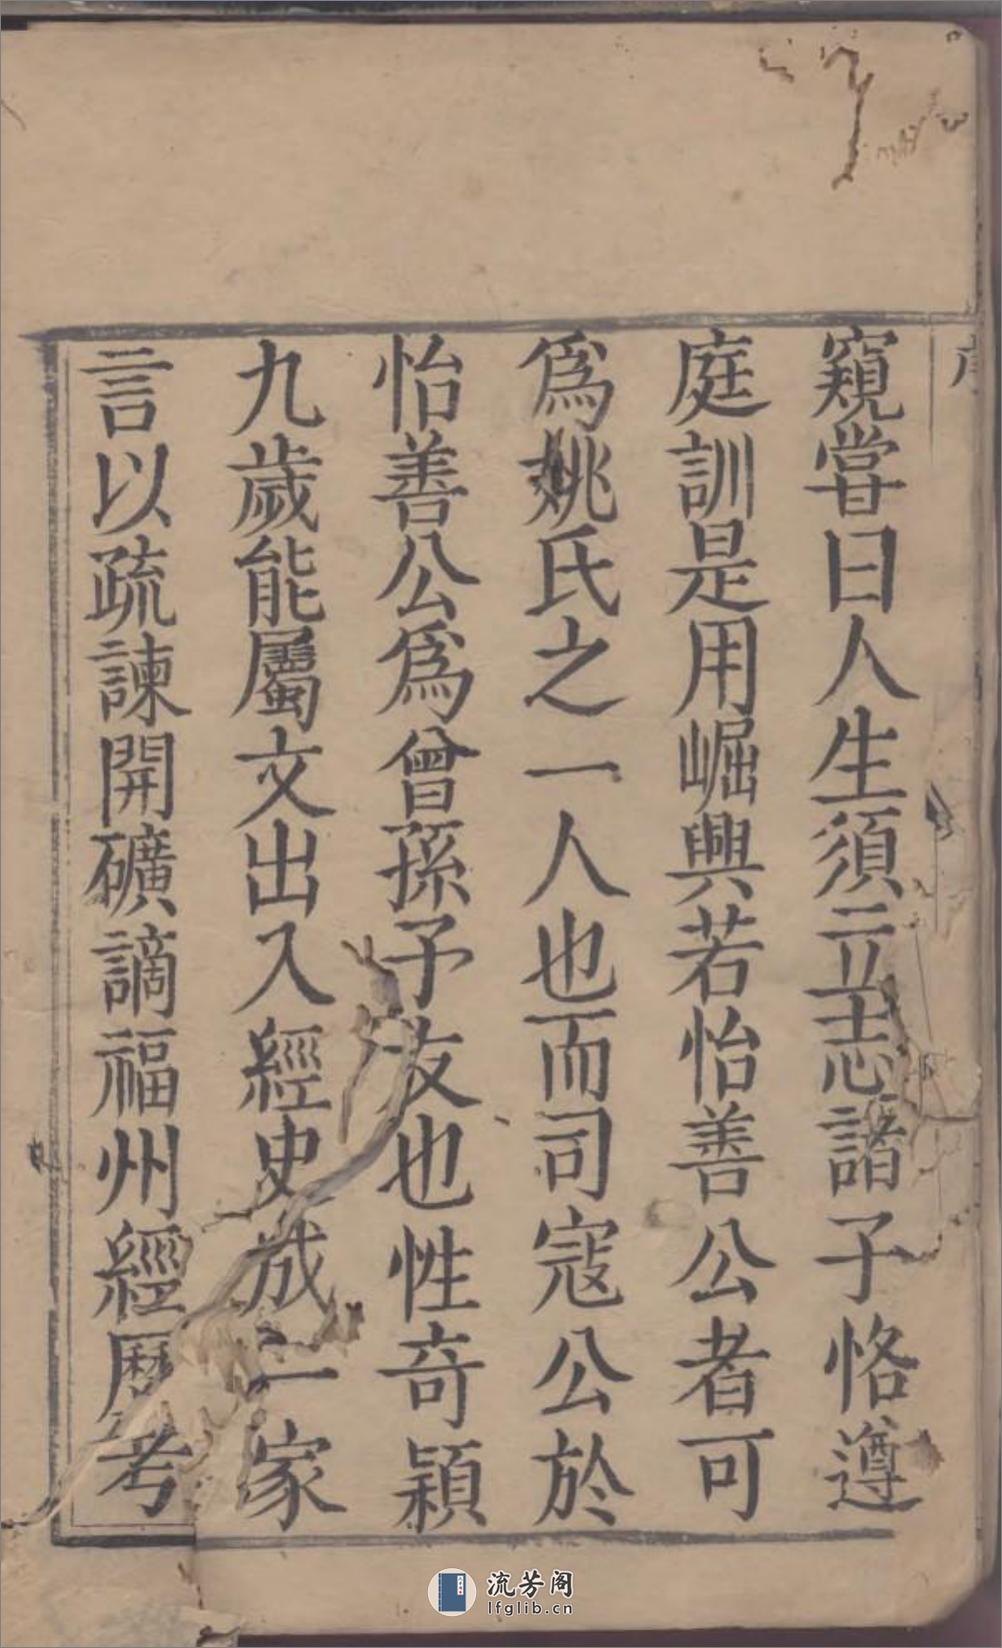 窺嘗曰人生須立志諸子恪遵
庭訓是用崛興若怡善公者可
為姚氏之一人也而司寇公於
怡善公為曾孫予友也性奇穎
九歲能屬文出入經史成一家
言以疏諫開礦謫福州經歷考
流芳阁
lfglib.cn